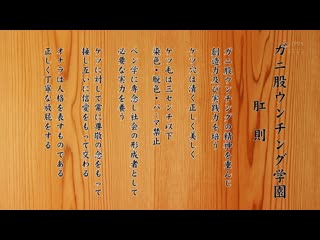 ガニ股ウンチング学園
肛則
ガニ股ウンチングの精神を重んじ
創造力及び実践力を培う
ケツ穴は清く正しく美しく
ケツ毛は三センチ以下
染色・脱色・パーマ禁止
ベン学に専念し社会の形成者として
必要な実力を養う
ケツに対して常に尊敬の念をもって
接し互いに信愛をもって交わる
オナラは人格を表すものである
正しく丁寧な放屁をする